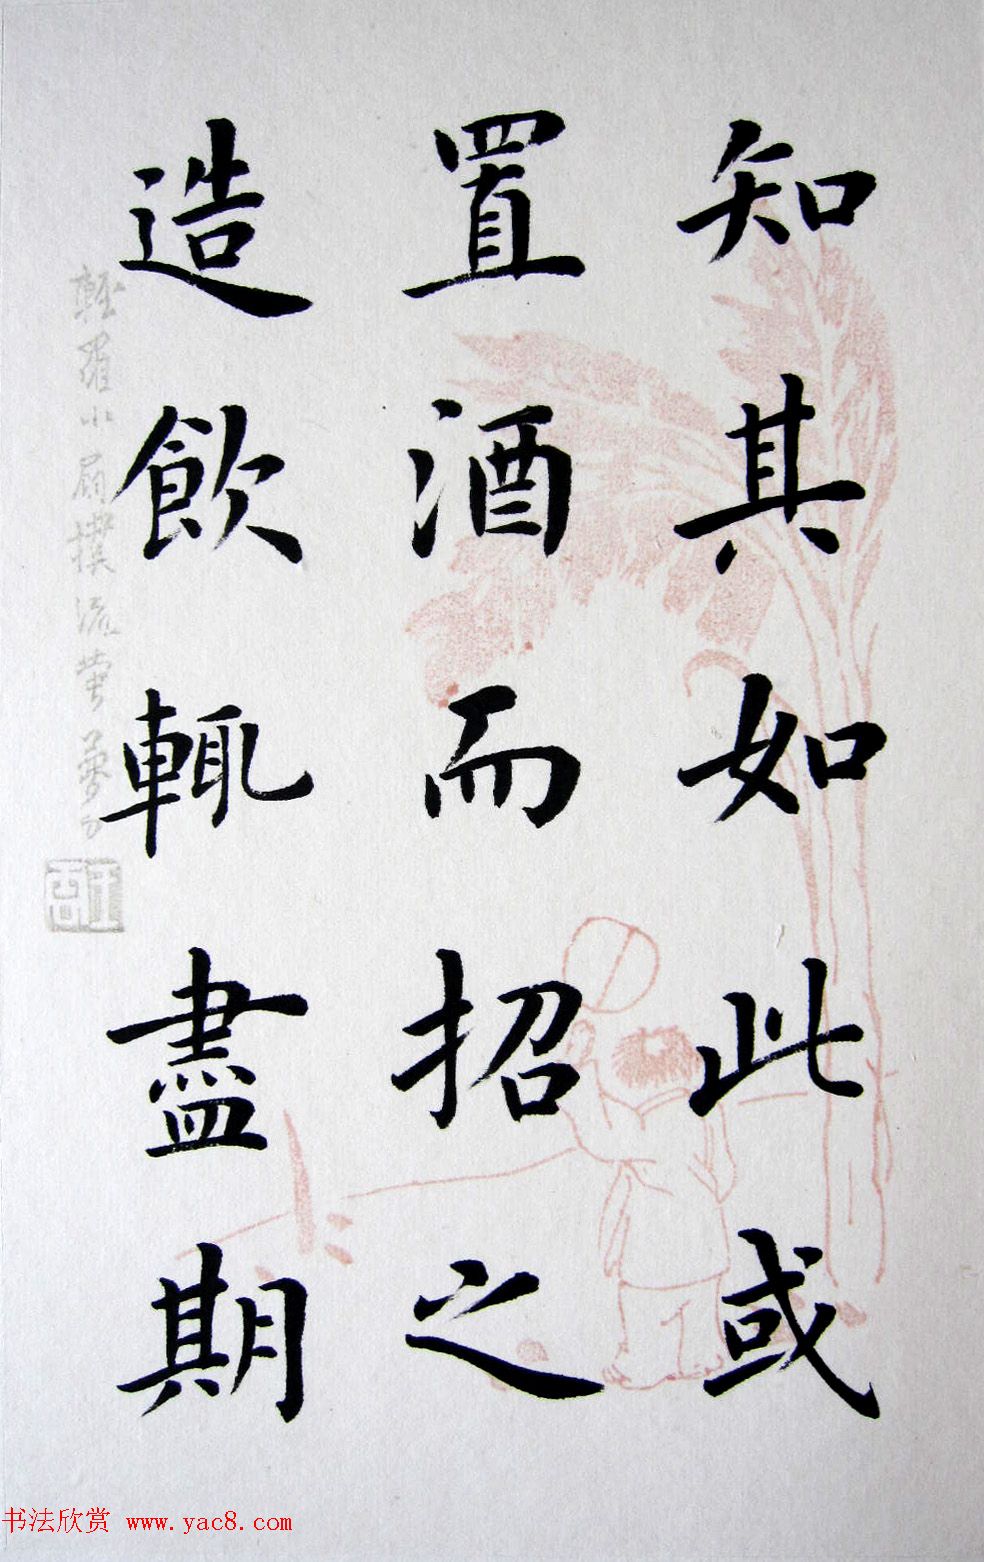 知其如此或
置酒而招之
造飲輒盡期
輕羅小扇撲流螢
书法欣赏 www.yac8.com